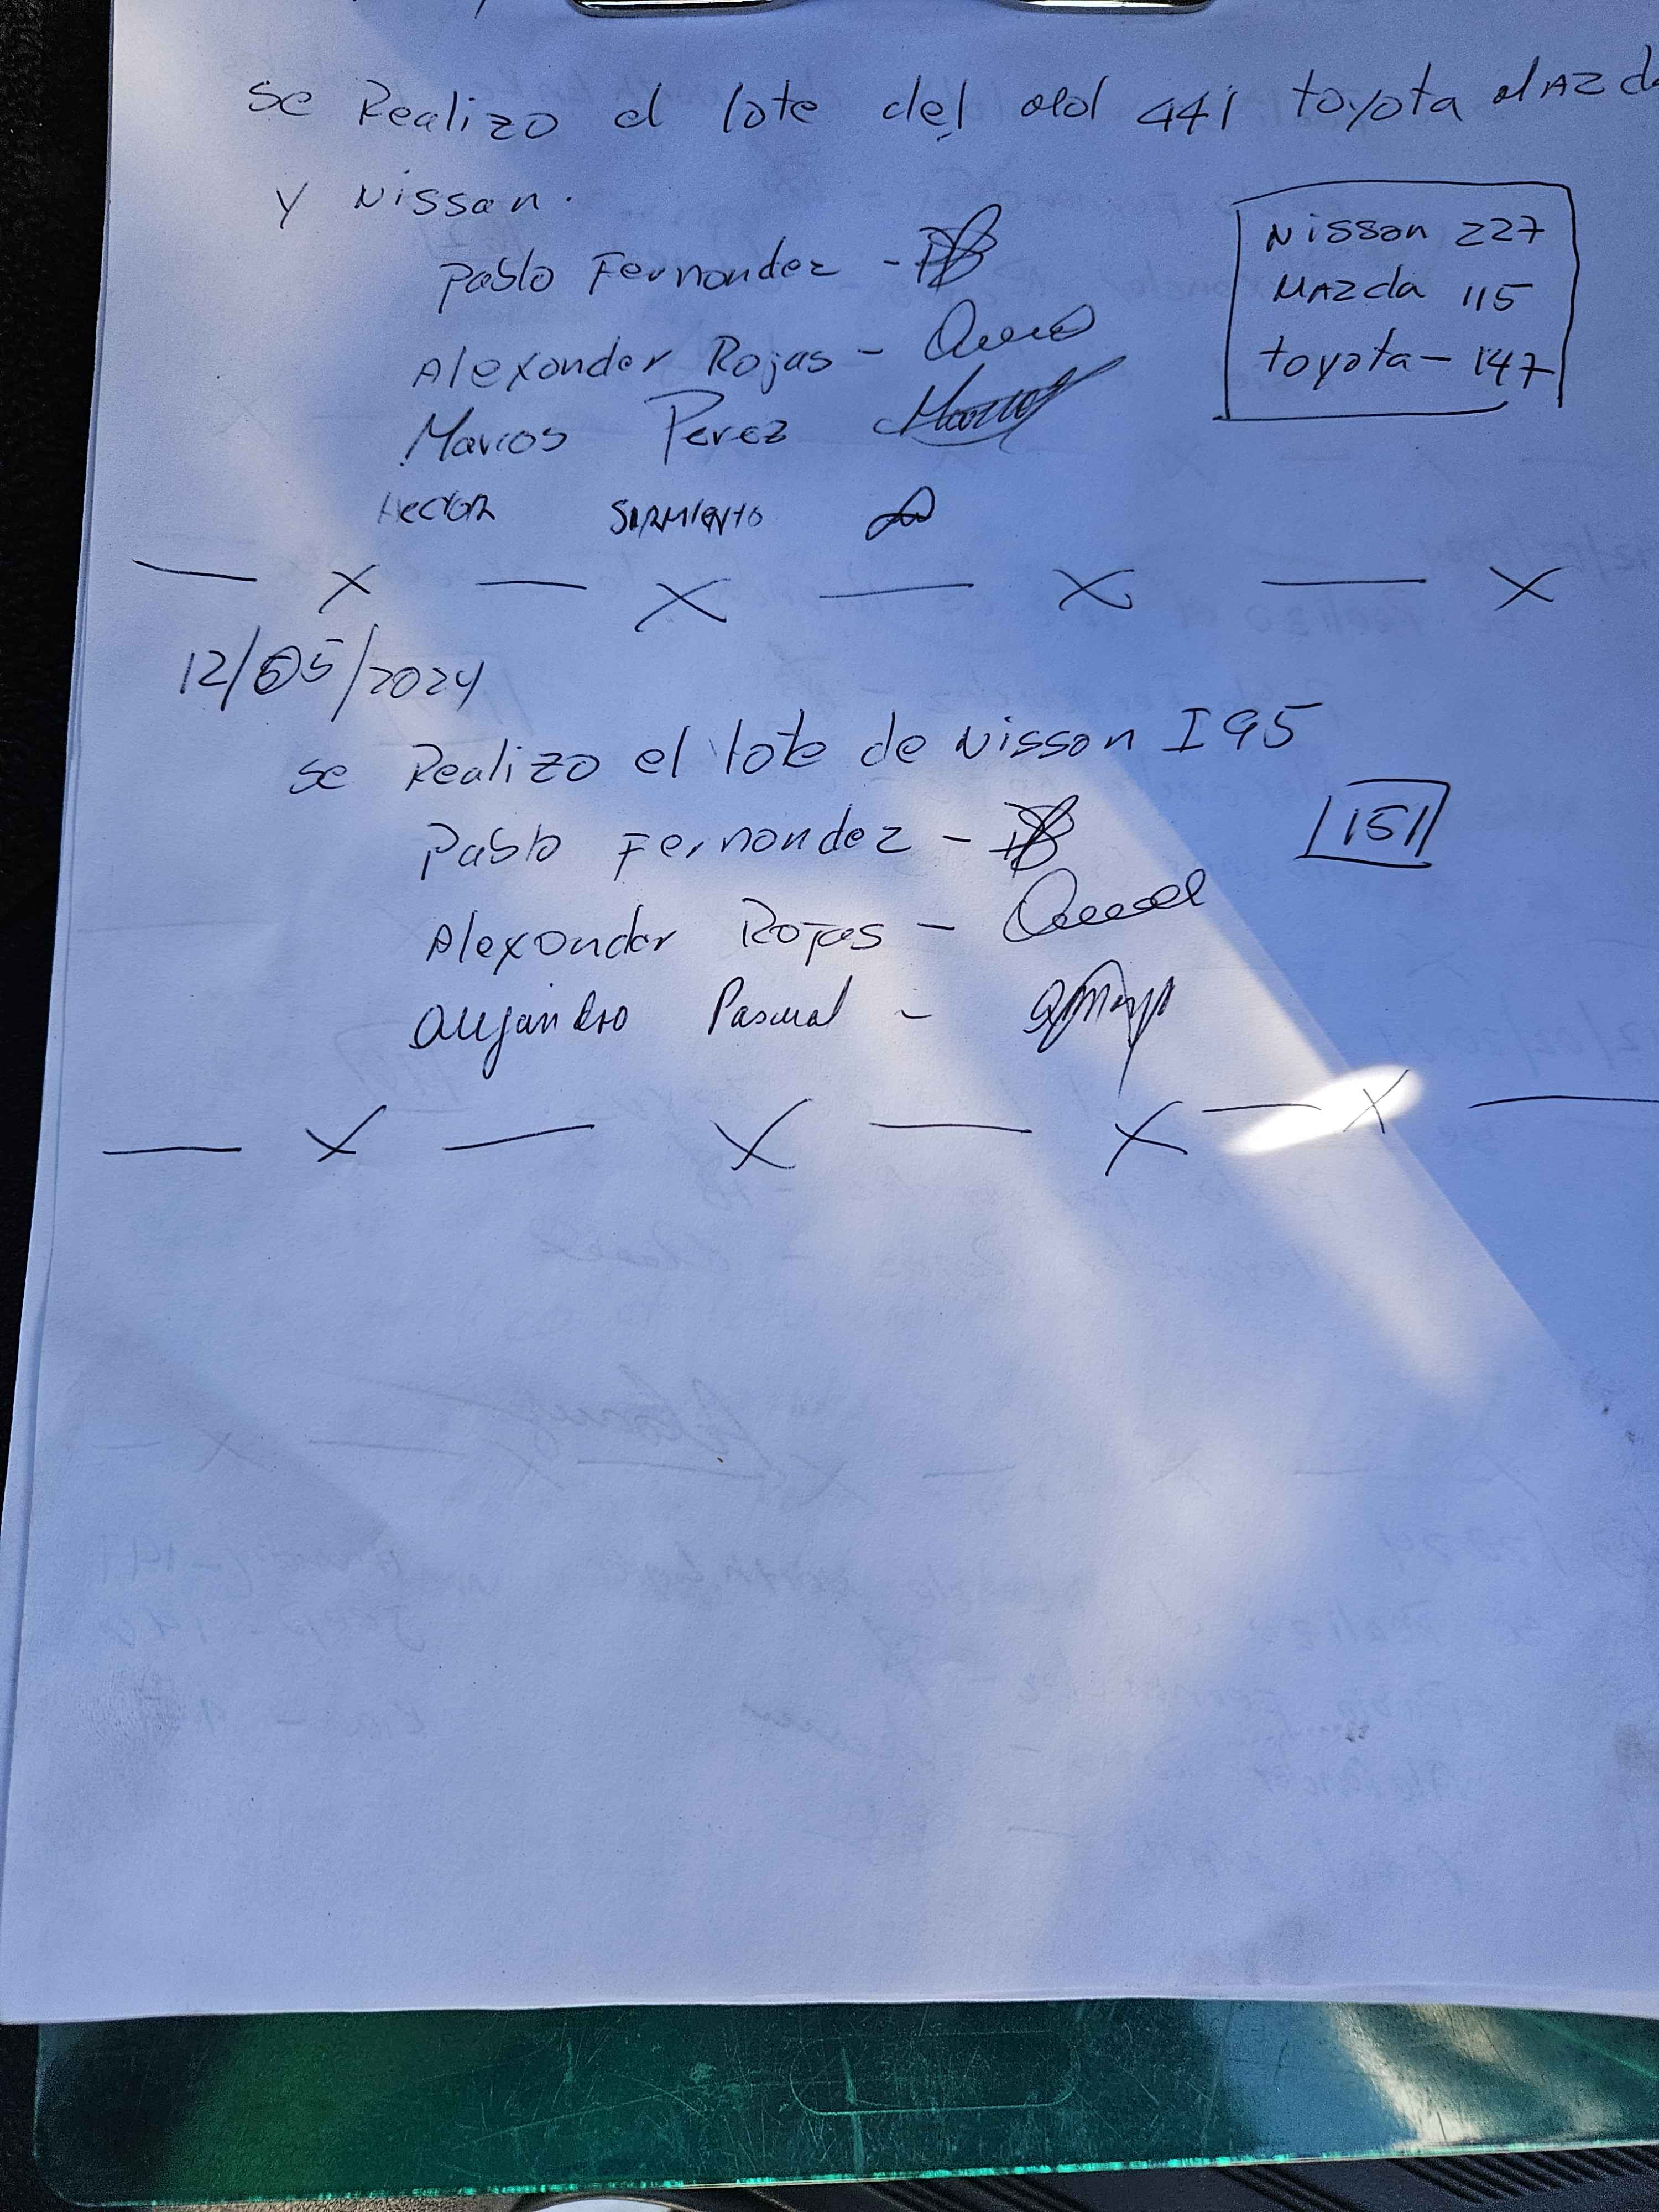 se Realizo el lote del old 441 toyota MAZda
y Nissan.
Nissan 227
MAZda 115
toyota - 147
Pablo Fernandez -
Alexander Rojas -
Marcos Perez
Hector SARMIENTO
— x — x — x — x
12/05/2024
se Realizo el lote de Nissan I95
151
Pablo Fernandez -
Alexander Rojas -
Alejandro Pascual -
— x — x — x — x —